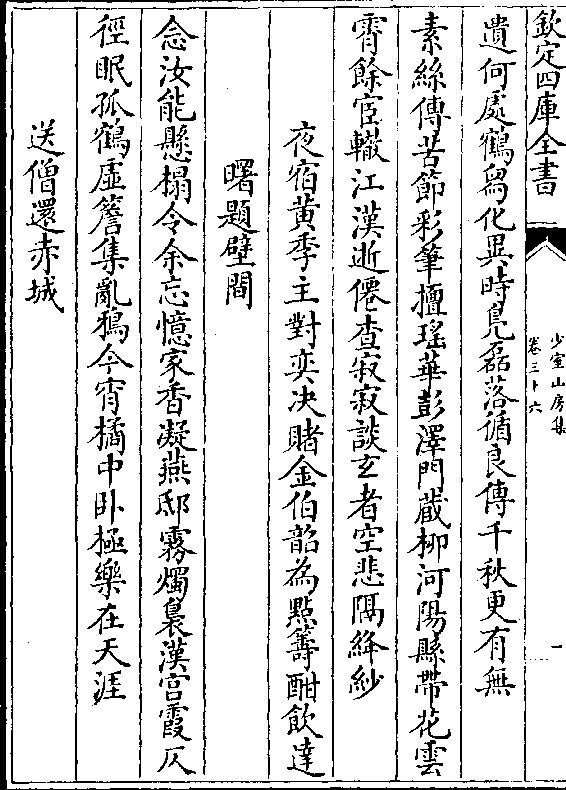 欽定四庫全書
少室山房集
卷三十六
一
遺何處鶴舄化異時鳬磊落循良傳千秋更有無
素絲傳苦節彩筆擅瑤華彭澤門蔵柳河陽縣帶花雲
霄餘宦轍江漢逝僊查寂寂談玄者空悲隔絳紗
夜宿黄季主對奕决賭金伯韶為㸃籌酣飲達
曙題壁間
念汝能懸榻令余忘憶家香凝燕邸霧燭裊漢宫霞仄
徑眠孤鶴虚簷集亂鴉今宵橘中卧極樂在天涯
送僧還赤城